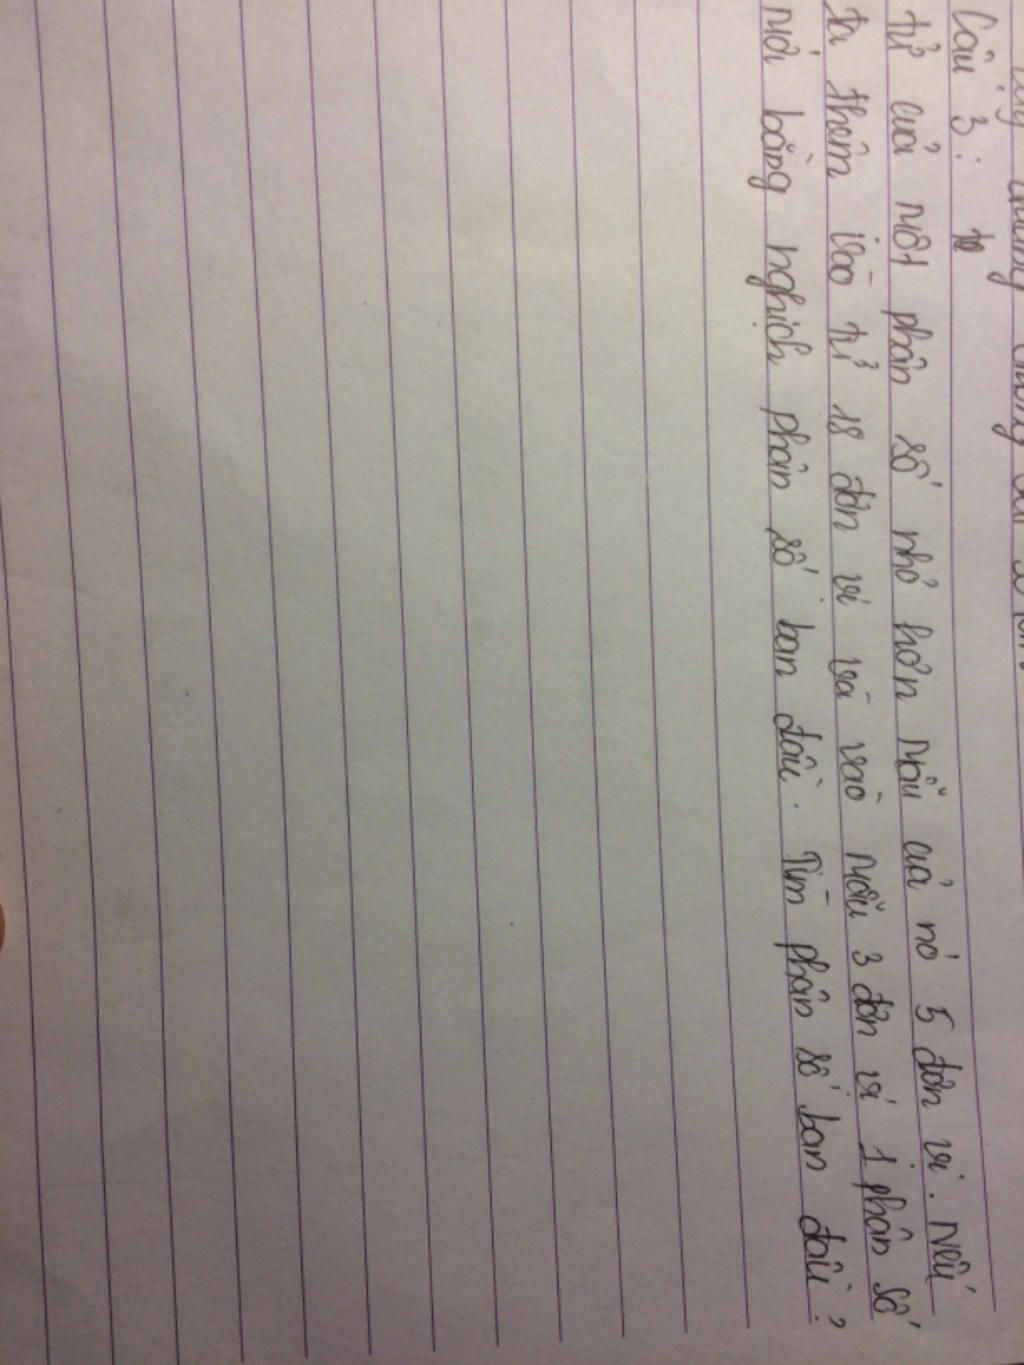 Câu 3:
tử của một phân số nhỏ hơn mẫu của nó 5 đơn vị. Nếu
ta thêm vào tử 18 đơn vị và vào mẫu 3 đơn vị 1 phân số
mới bằng nghịch phân số ban đầu. Tìm phân số ban đầu?